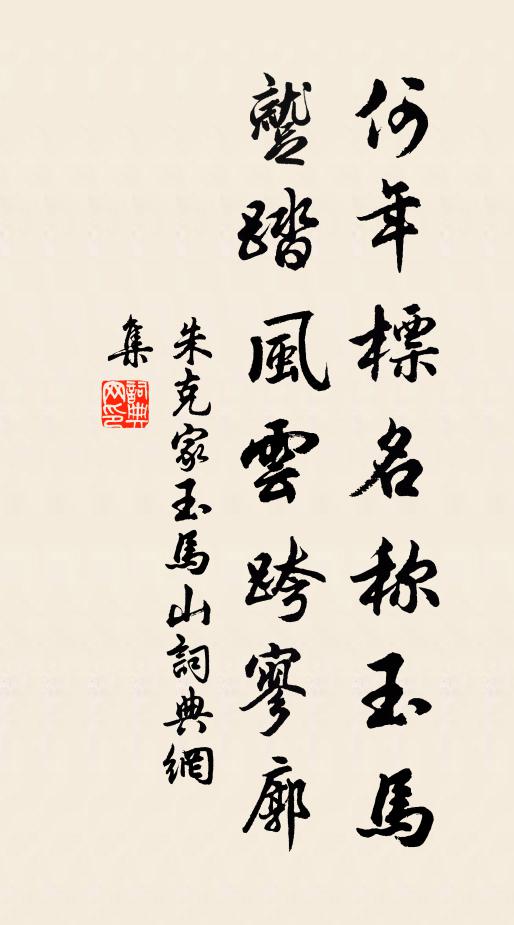 何年標名称玉馬
蹔踏風雲跨寥廓
朱克家玉馬山詞典網
集
詞典網印